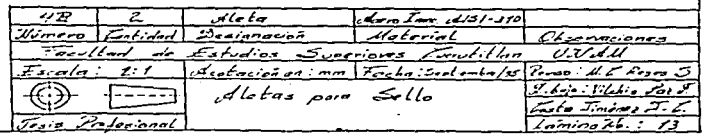 4B 2 Aleta Acero Inox. AISI-310
Número Cantidad Designación Material Observaciones
Facultad de Estudios Superiores Cuautitlan U.N.A.M
Escala: 1:1 Acotación en: mm Fecha: Septiembre/95 M. C Reyes S
Aletas para Sello
Jiménez J. C.
Tesis Profesional Lamina No.: 13